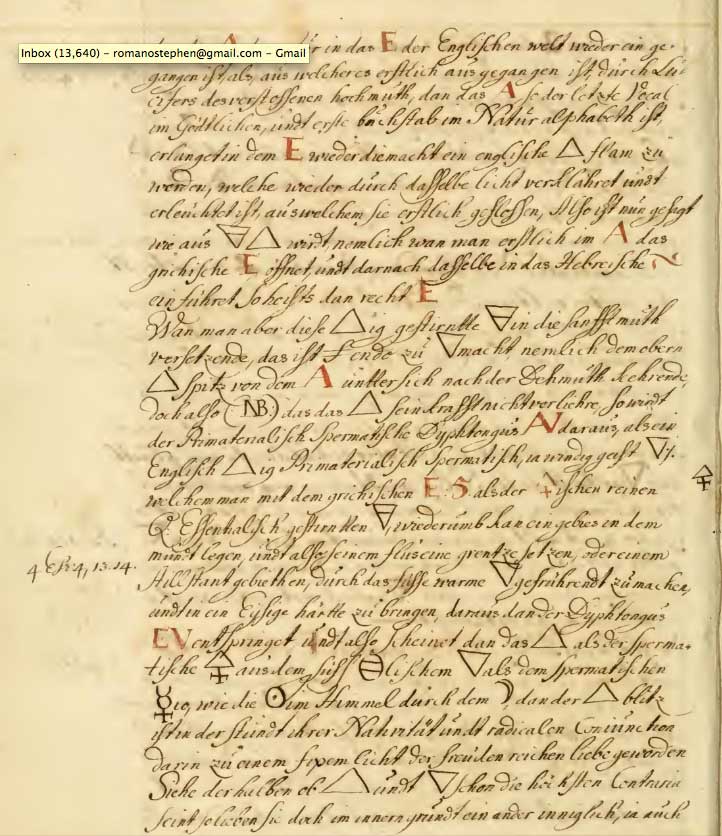 Inbox (13,640) – romanostephen@gmail.com – Gmail
in das E der Englischen welt wieder ein ge-
gangen ist, als, aus welcheres erstlich ausgegangen ist, durch Lu-
cifers des verstossenen hochmuth, dan das A so der letzte Vocal
im Göttlichen, undt erste buchstab im Natur alphabeth ist,
erlanget in dem E wieder die macht ein englische △ flam zu
werden, welche wieder durch dasselbe licht verklähret undt
erleuchtet ist, aus welchem sie erstlich geflossen, Also ist nun gesagt
wie aus ▽ △ wirdt, nemlich wan man erstlich im A das
grichische E öffnet, undt darnach dasselbe in das Hebreische
einführet so heists dan recht E
Wan man aber diese △ig gestirnte ▽ in die sanfftmuth
versetzende, das ist zu ▽ macht, nemlich dem obern
△ spitz von dem A unttersich nach der Dehmuth kehrende,
doch also (NB.) das das △ sein krafft nicht verliehre, so wirdt
der Primaterialisch Spermatische Dyphtongus AV daraus, als ein
Englisch △ig Primaterialisch Spermatisch, ia windig geist
welchem man mit dem grichischen E : S als der ischen reinen
Q Essentialisch gestirntten ▽, wiederumb kan ein gebies in dem
mundt legen, undt also seinem flus eine grentze setzen, oder einem
4 Esr: 4, 13. 14.
Stillstant gebiethen, durch das süsse warme ▽ gefrührendt zu machen,
undt in ein Eysige härtte zu bringen, daraus dan der Dyphtongus
EV entspringet undt also scheinet dan das △ als der sperma-
tische 🜍 aus dem süss ⊖lischem ▽ als dem spermatischen
☿io, wie die ☉ im Himmel durch dem ☽, dan der △ blitz
ist in der stundt ihrer Nativität undt radicalen Coniunction
darin zu einem fixem licht der freuden reichen liebe geworden
Siehe derhalben ob △ undt ▽ schon die höchsten Contraria
seint so lieben sie doch im innern grundt ein ander inniglich, ia auch